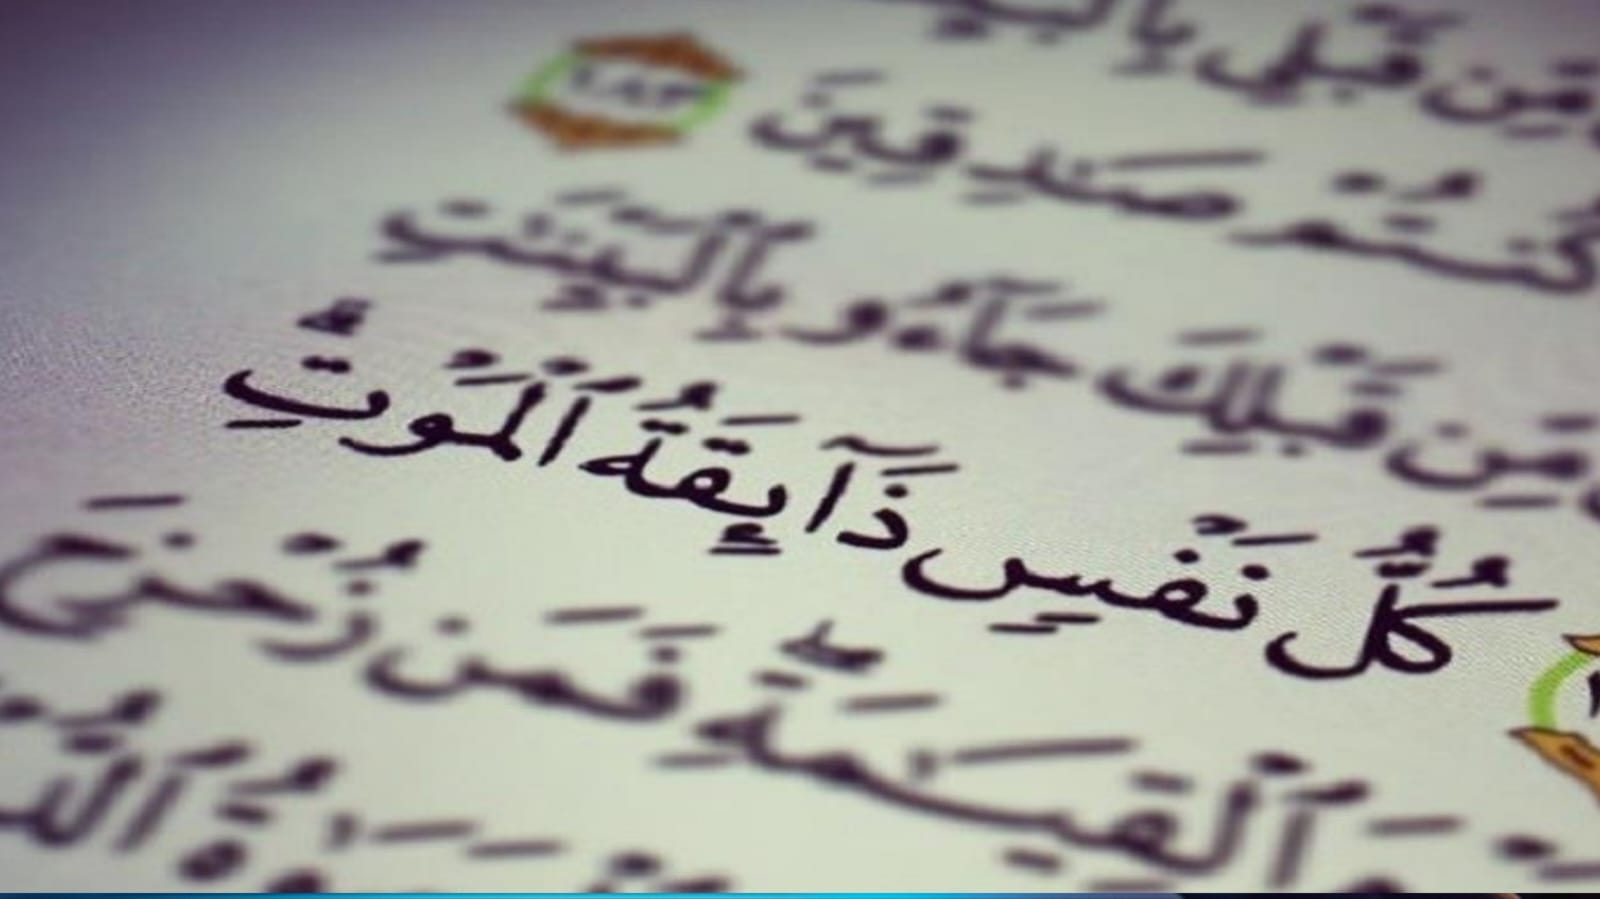 مِّن قَبْلِى بِٱلْبَيِّ
كُنتُمْ صَٰدِقِينَ ١٨٣
مِّن قَبْلِكَ جَآءُو بِٱلْبَيِّنَٰتِ
كُلُّ نَفْسٍ ذَآئِقَةُ ٱلْمَوْتِ ۗ
ٱلْقِيَٰمَةِ ۖ فَمَن زُحْزِحَ